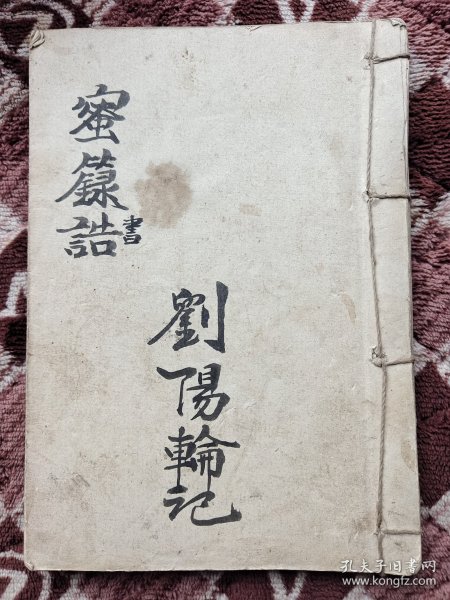 蜜籙誥書
劉陽輪記
孔夫子旧书网
www.kongfz.com